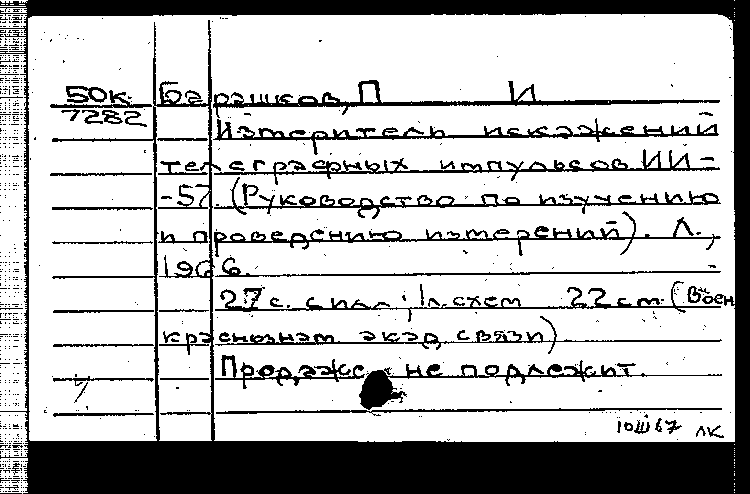 50к Барашков, П И
7282
Измеритель искажений
телеграфных импульсов ИИ-
-57. (Руководство по изучению
и проведению измерений). Л.,
1966.
27 с. с илл; 1л. схем 22 см. (Воен
краснознам акад, связи)
Продаже не подлежит.
10Ш67 ЛК